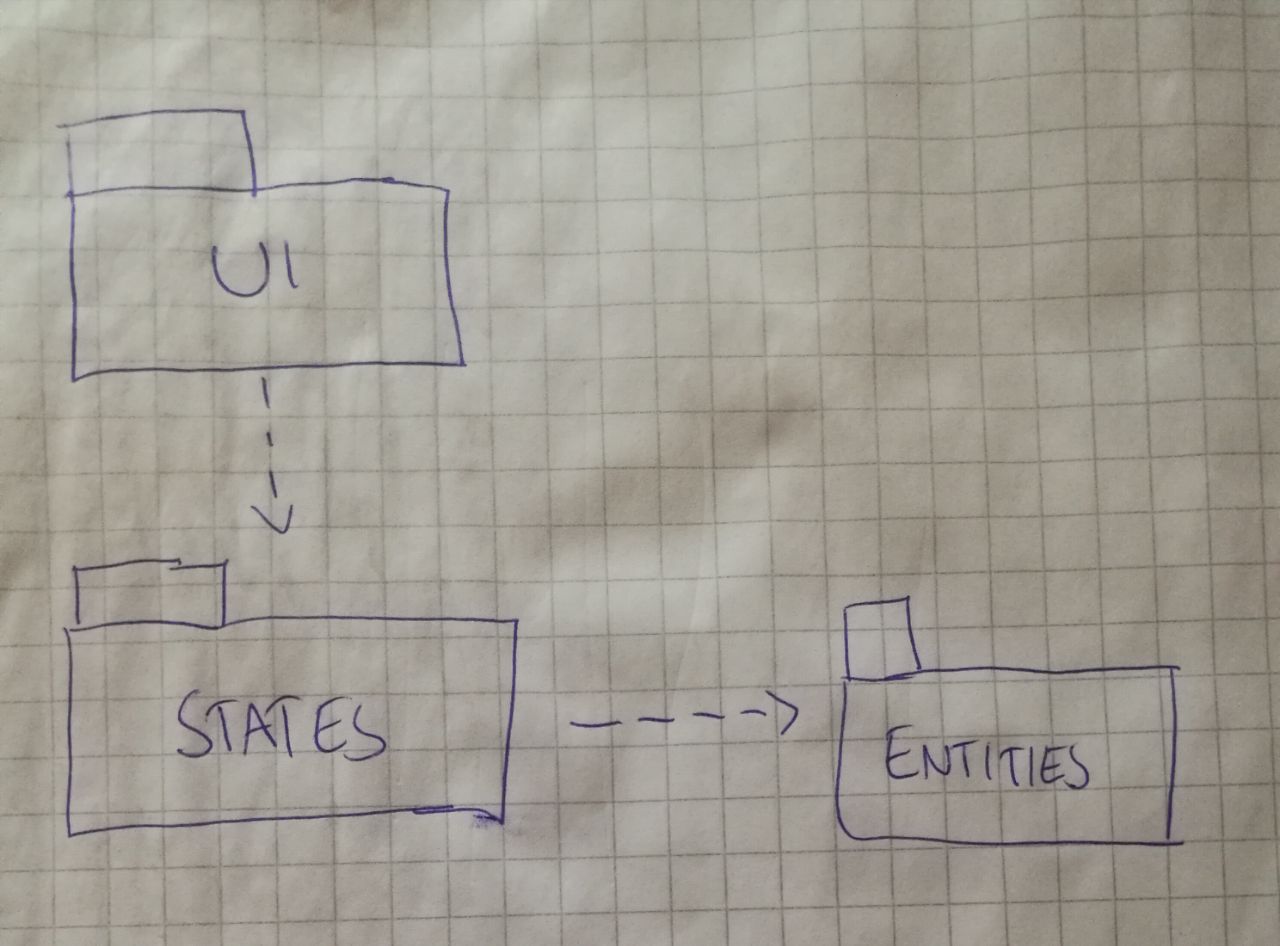 UI
STATES
ENTITIES